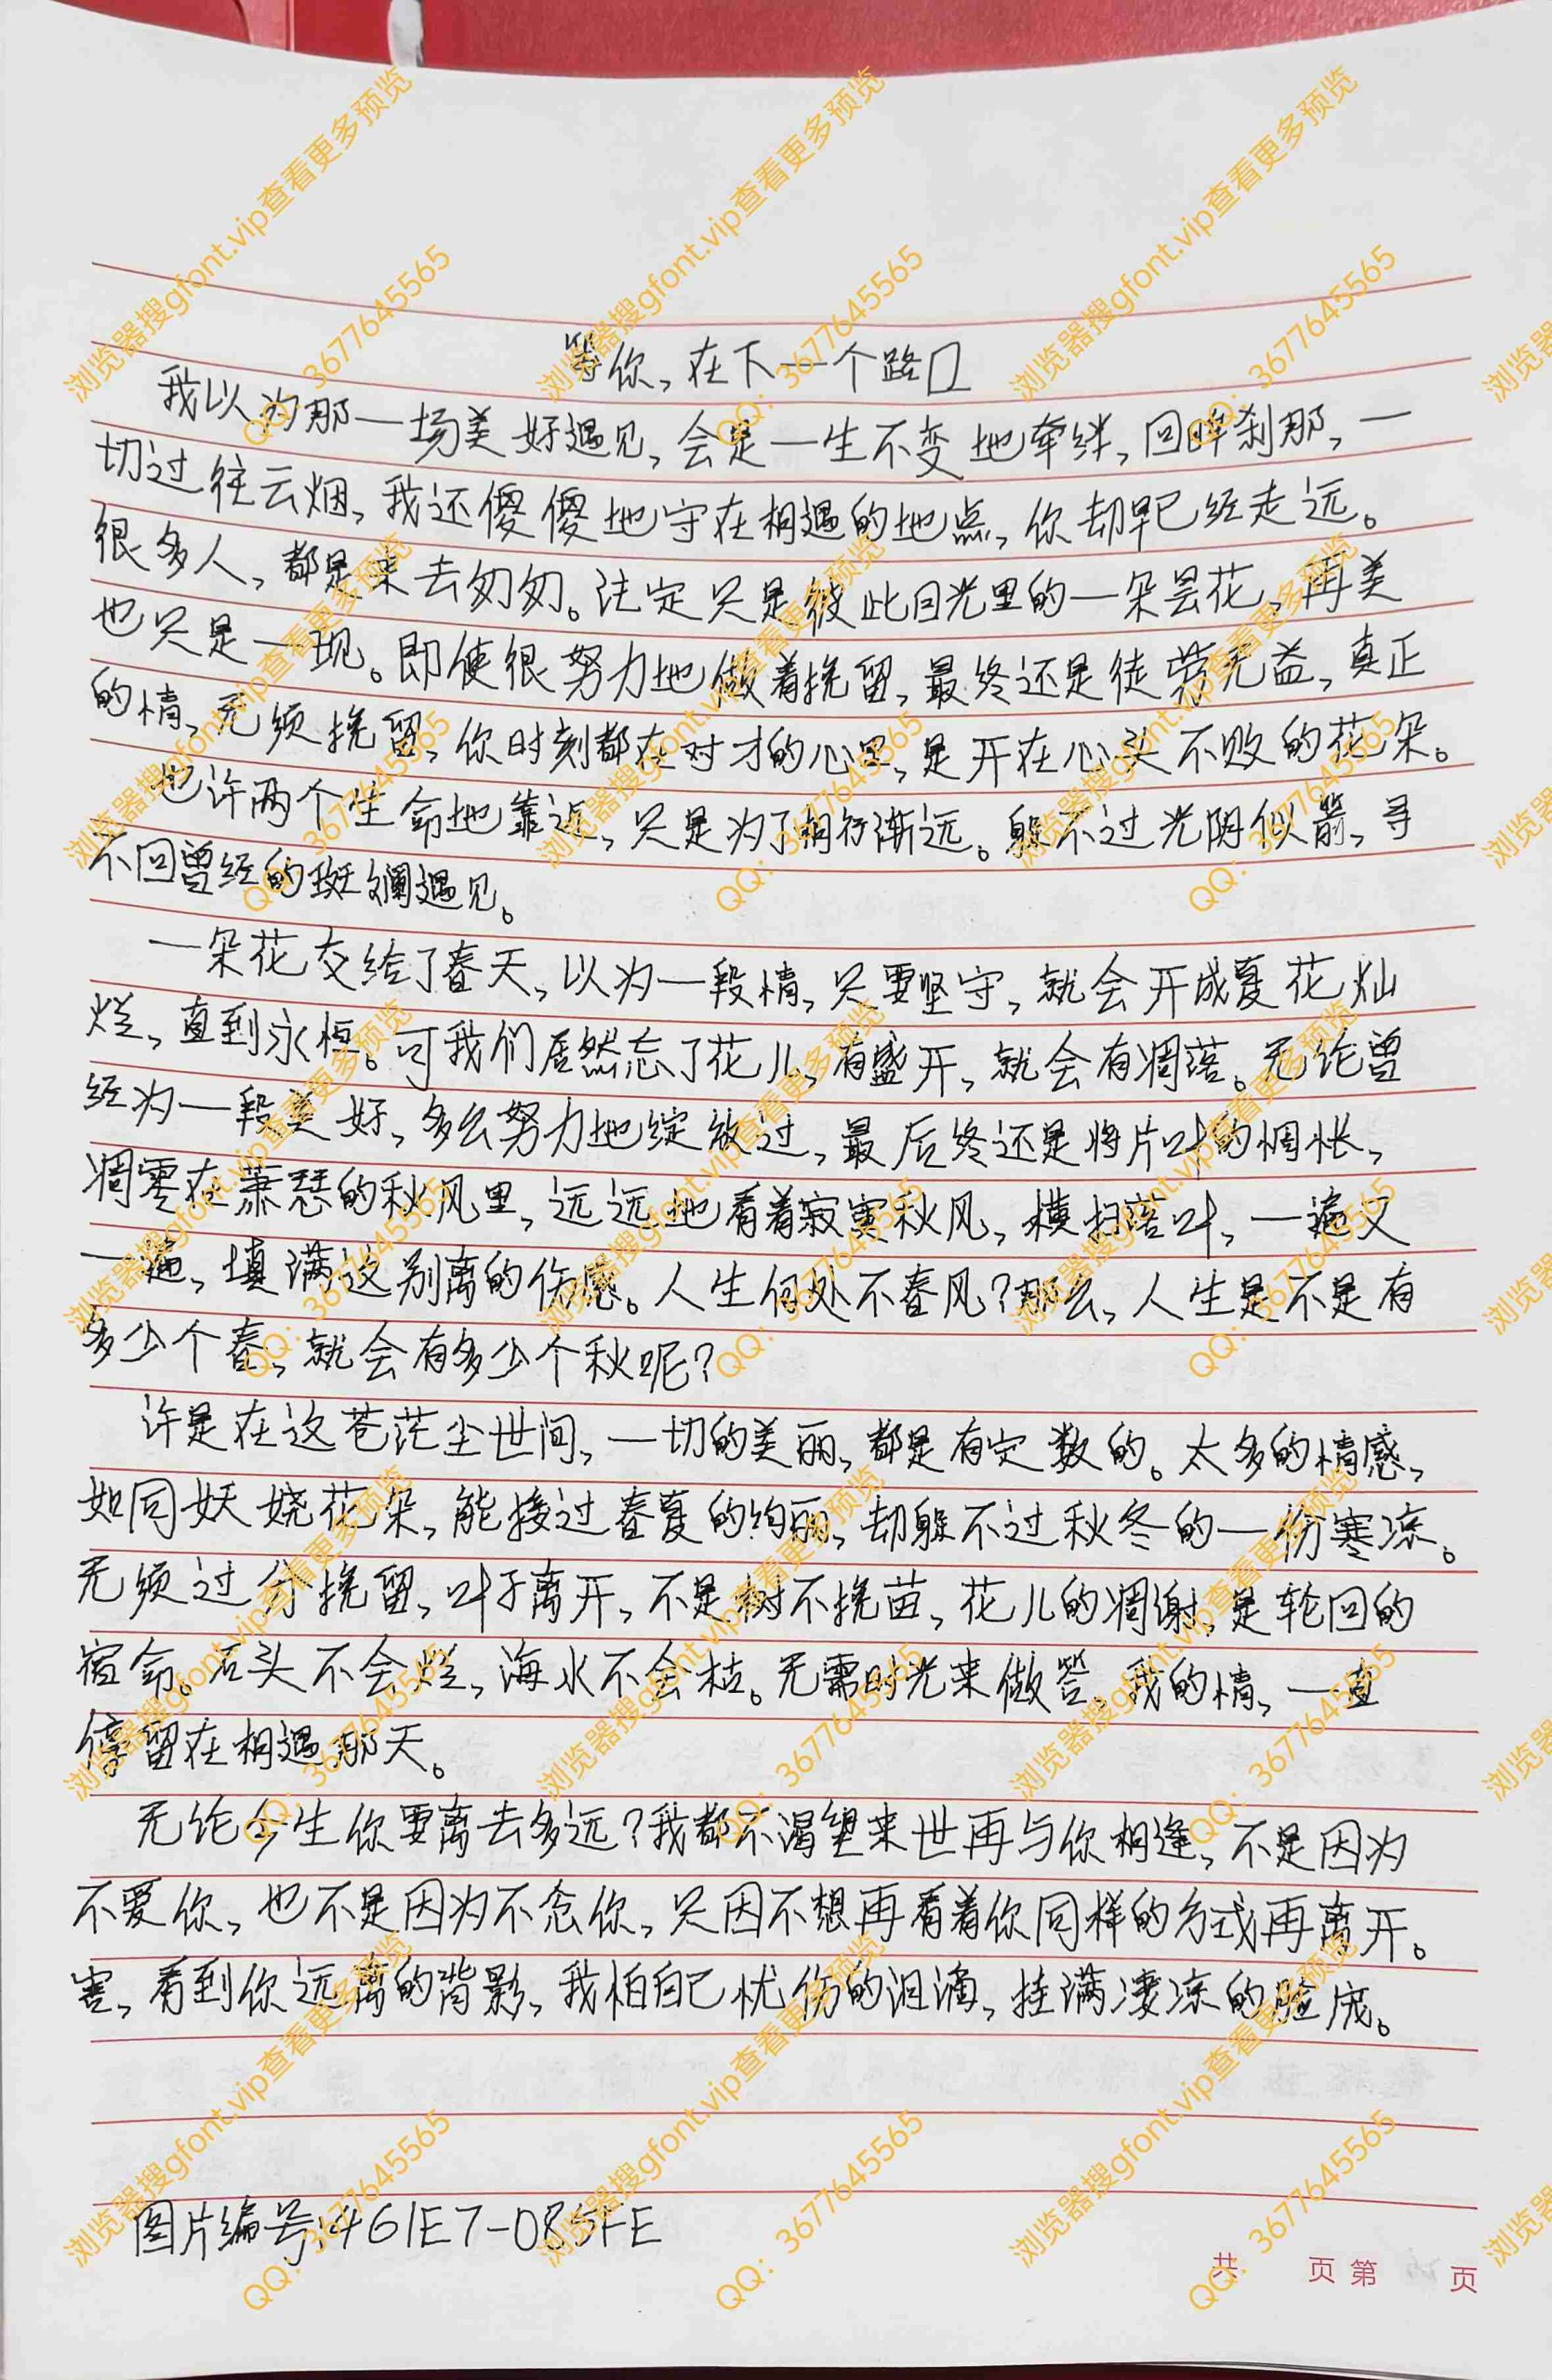 等你，在下一个路口
我以为那一场美好遇见，会是一生不变地牵绊，回眸刹那，一
切过往云烟，我还傻傻地守在相遇的地点，你却早已经走远。
很多人，都是来去匆匆。注定只是彼此目光里的一朵昙花，再美
也只是一现。即使很努力地做着挽留，最终还是徒劳无益，真正
的情，无须挽留，你时刻都在对才的心里，是开在心头不败的花朵。
也许两个生命地靠近，只是为了相行渐远。躲不过光阴似箭，寻
不回曾经的斑斓遇见。
一朵花交给了春天，以为一段情，只要坚守，就会开成夏花灿
烂，直到永恒。可我们居然忘了花儿，有盛开，就会有凋落。无论曾
经为一段美好，多么努力地绽放过，最后终还是将片叶的惆怅，
凋零在萧瑟的秋风里，远远地看着寂寞秋风，横扫落叶，一遍又
一遍，填满这别离的伤感。人生何处不春风？那么，人生是不是有
多少个春，就会有多少个秋呢？
许是在这苍茫尘世间，一切的美丽，都是有定数的。太多的情感，
如同妖娆花朵，能接过春夏的绚丽，却躲不过秋冬的一份寒凉。
无须过分挽留，叶子离开，不是树不挽苗，花儿的凋谢，是轮回的
宿命。石头不会烂，海水不会枯。无需时光来做答，我的情，一直
停留在相遇那天。
无论今生你要离去多远？我都不渴望来世再与你相逢，不是因为
不爱你，也不是因为不念你，只因不想再看着你同样的方式再离开。
害，看到你远离的背影，我怕自己忧伤的泪滴，挂满凄凉的脸庞。
图片编号:461E7-085FE
共 页 第 页
浏览器搜gfont.vip查看更多预览
QQ：3677645565